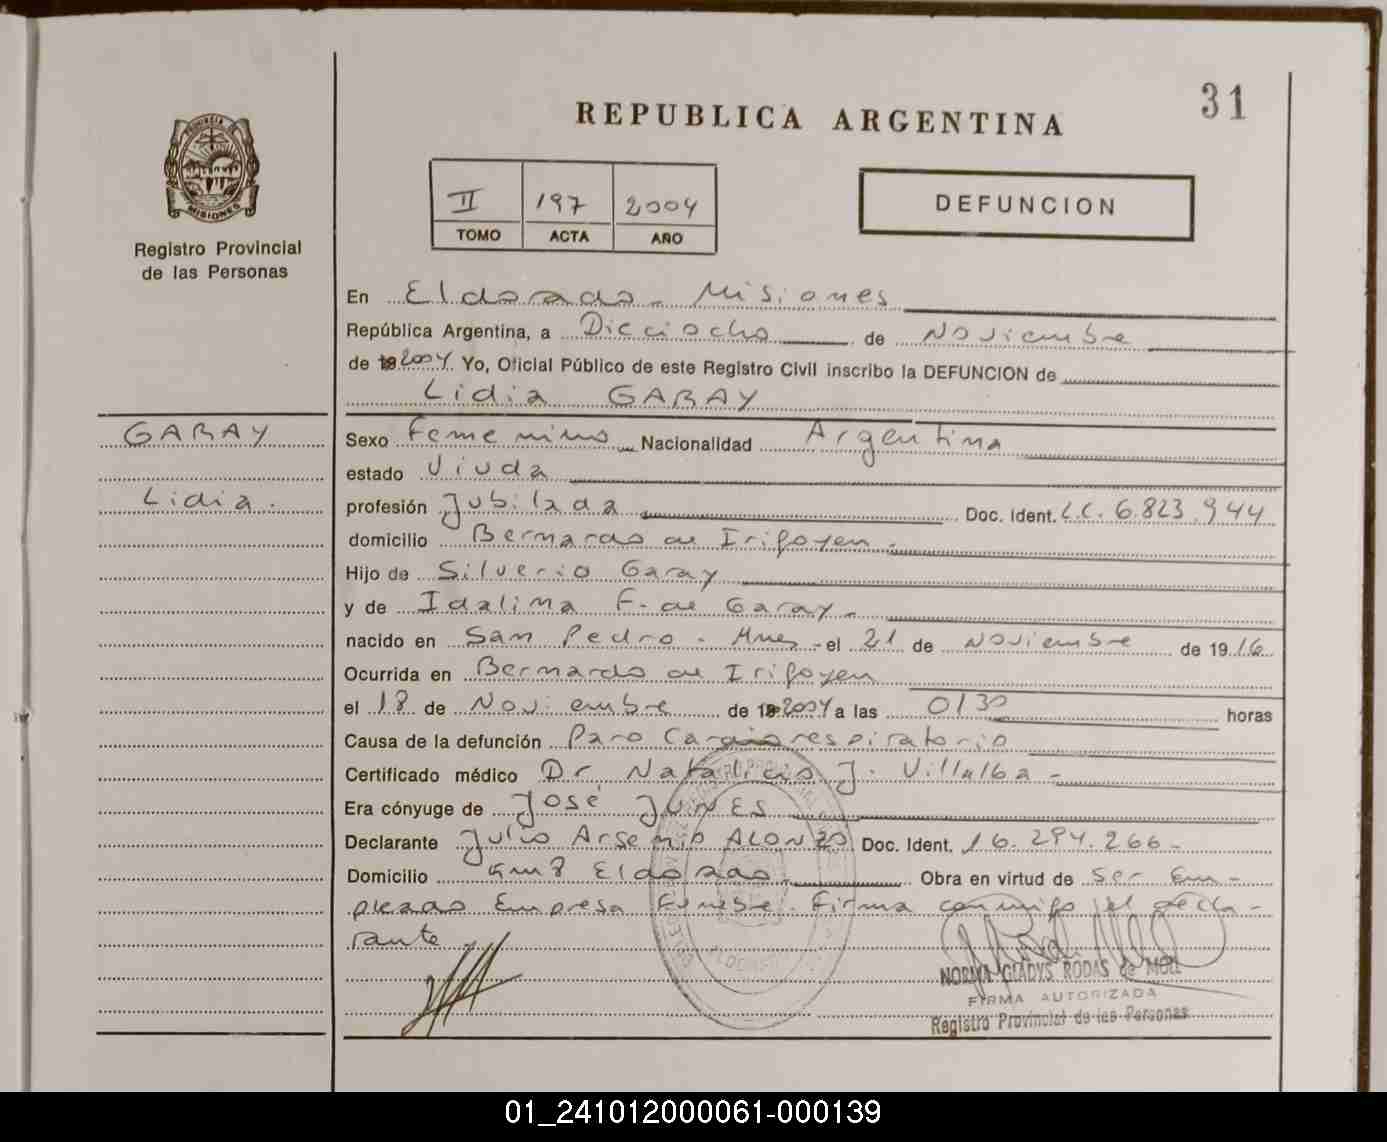 31
REPUBLICA ARGENTINA
PROVINCIA DE
MISIONES
Registro Provincial
de las Personas
II 197 2004
TOMO ACTA AÑO
DEFUNCION
En Eldorado - Misiones
República Argentina, a Dieciocho de Noviembre
de 2004 Yo, Oficial Público de este Registro Civil inscribo la DEFUNCION de
Lidia GARAY
GARAY
Lidia.
Sexo Femenino Nacionalidad Argentina
estado Viuda
profesión Jubilada Doc. Ident. L.C. 6.823.944
domicilio Bernardo de Irigoyen -
Hijo de Silverio Garay
y de Idalima F. de Garay -
nacido en San Pedro - Mnes - el 21 de Noviembre de 1916
Ocurrida en Bernardo de Irigoyen
el 18 de Noviembre de 2004 a las 0130 horas
Causa de la defunción Paro Cardiorespiratorio
Certificado médico Dr Natalicio J. Villalba -
Era cónyuge de José JUNES
Declarante Julio Arsenio ALONZO Doc. Ident. 16.294.266 -
Domicilio Km 8 Eldorado - Obra en virtud de ser Em-
pleado Empresa Funebre. Firma conmigo el decla-
rante
NORMA GLADYS RODAS de MOLL
FIRMA AUTORIZADA
Registro Provincial de las Personas
01_241012000061-000139